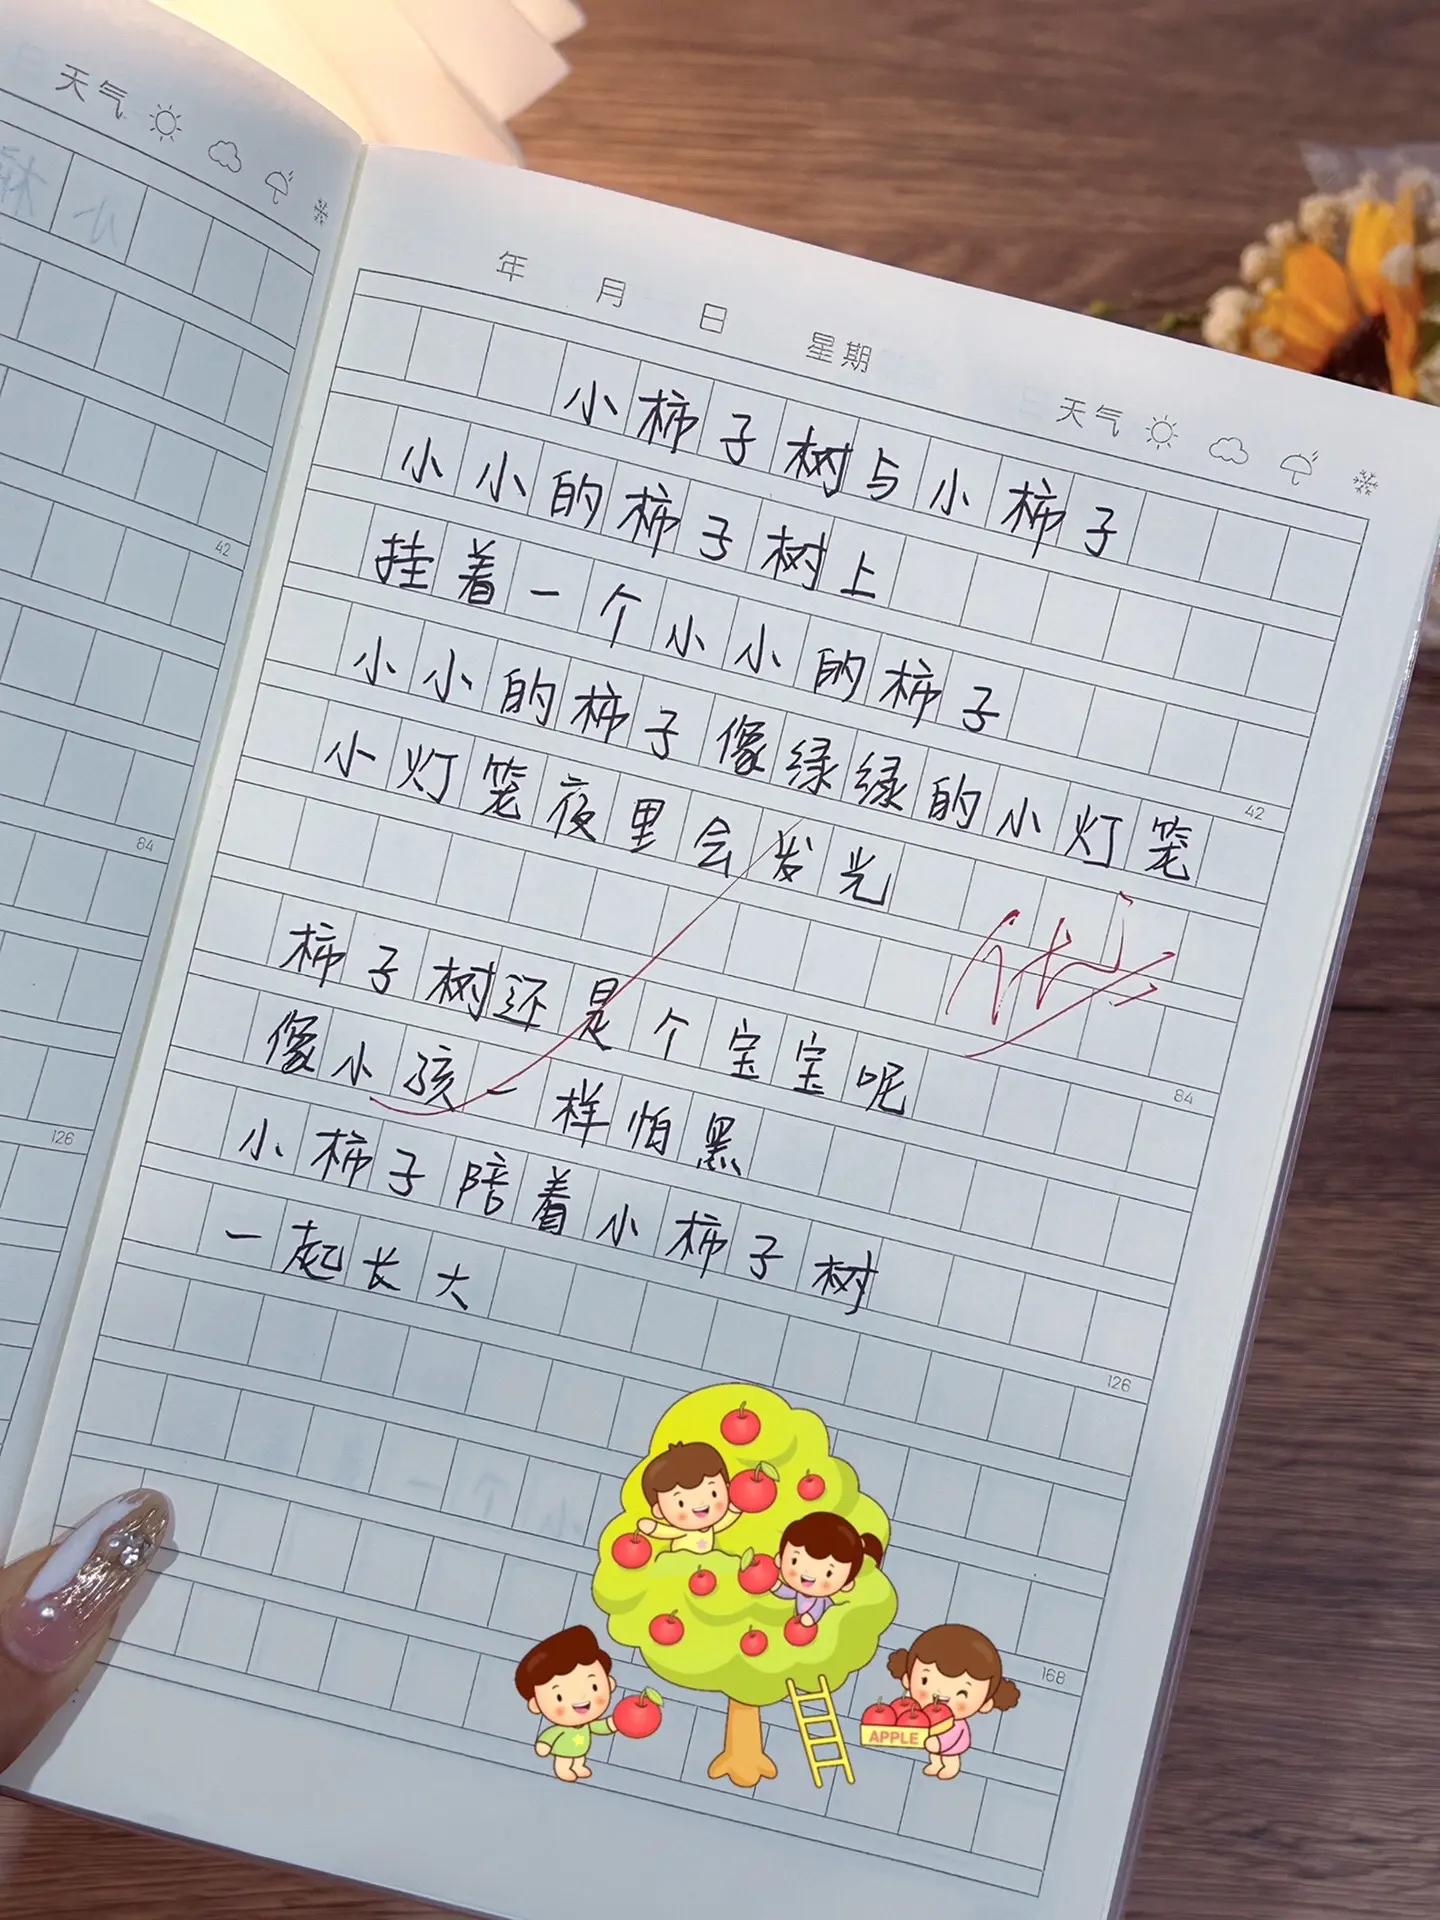 天气
42
84
126
年 月 日 星期 天气
小柿子树与小柿子
小小的柿子树上
挂着一个小小的柿子
小小的柿子像绿绿的小灯笼
小灯笼夜里会发光
柿子树还是个宝宝呢
像小孩一样怕黑
小柿子陪着小柿子树
一起长大
42
优
84
126
168
APPLE